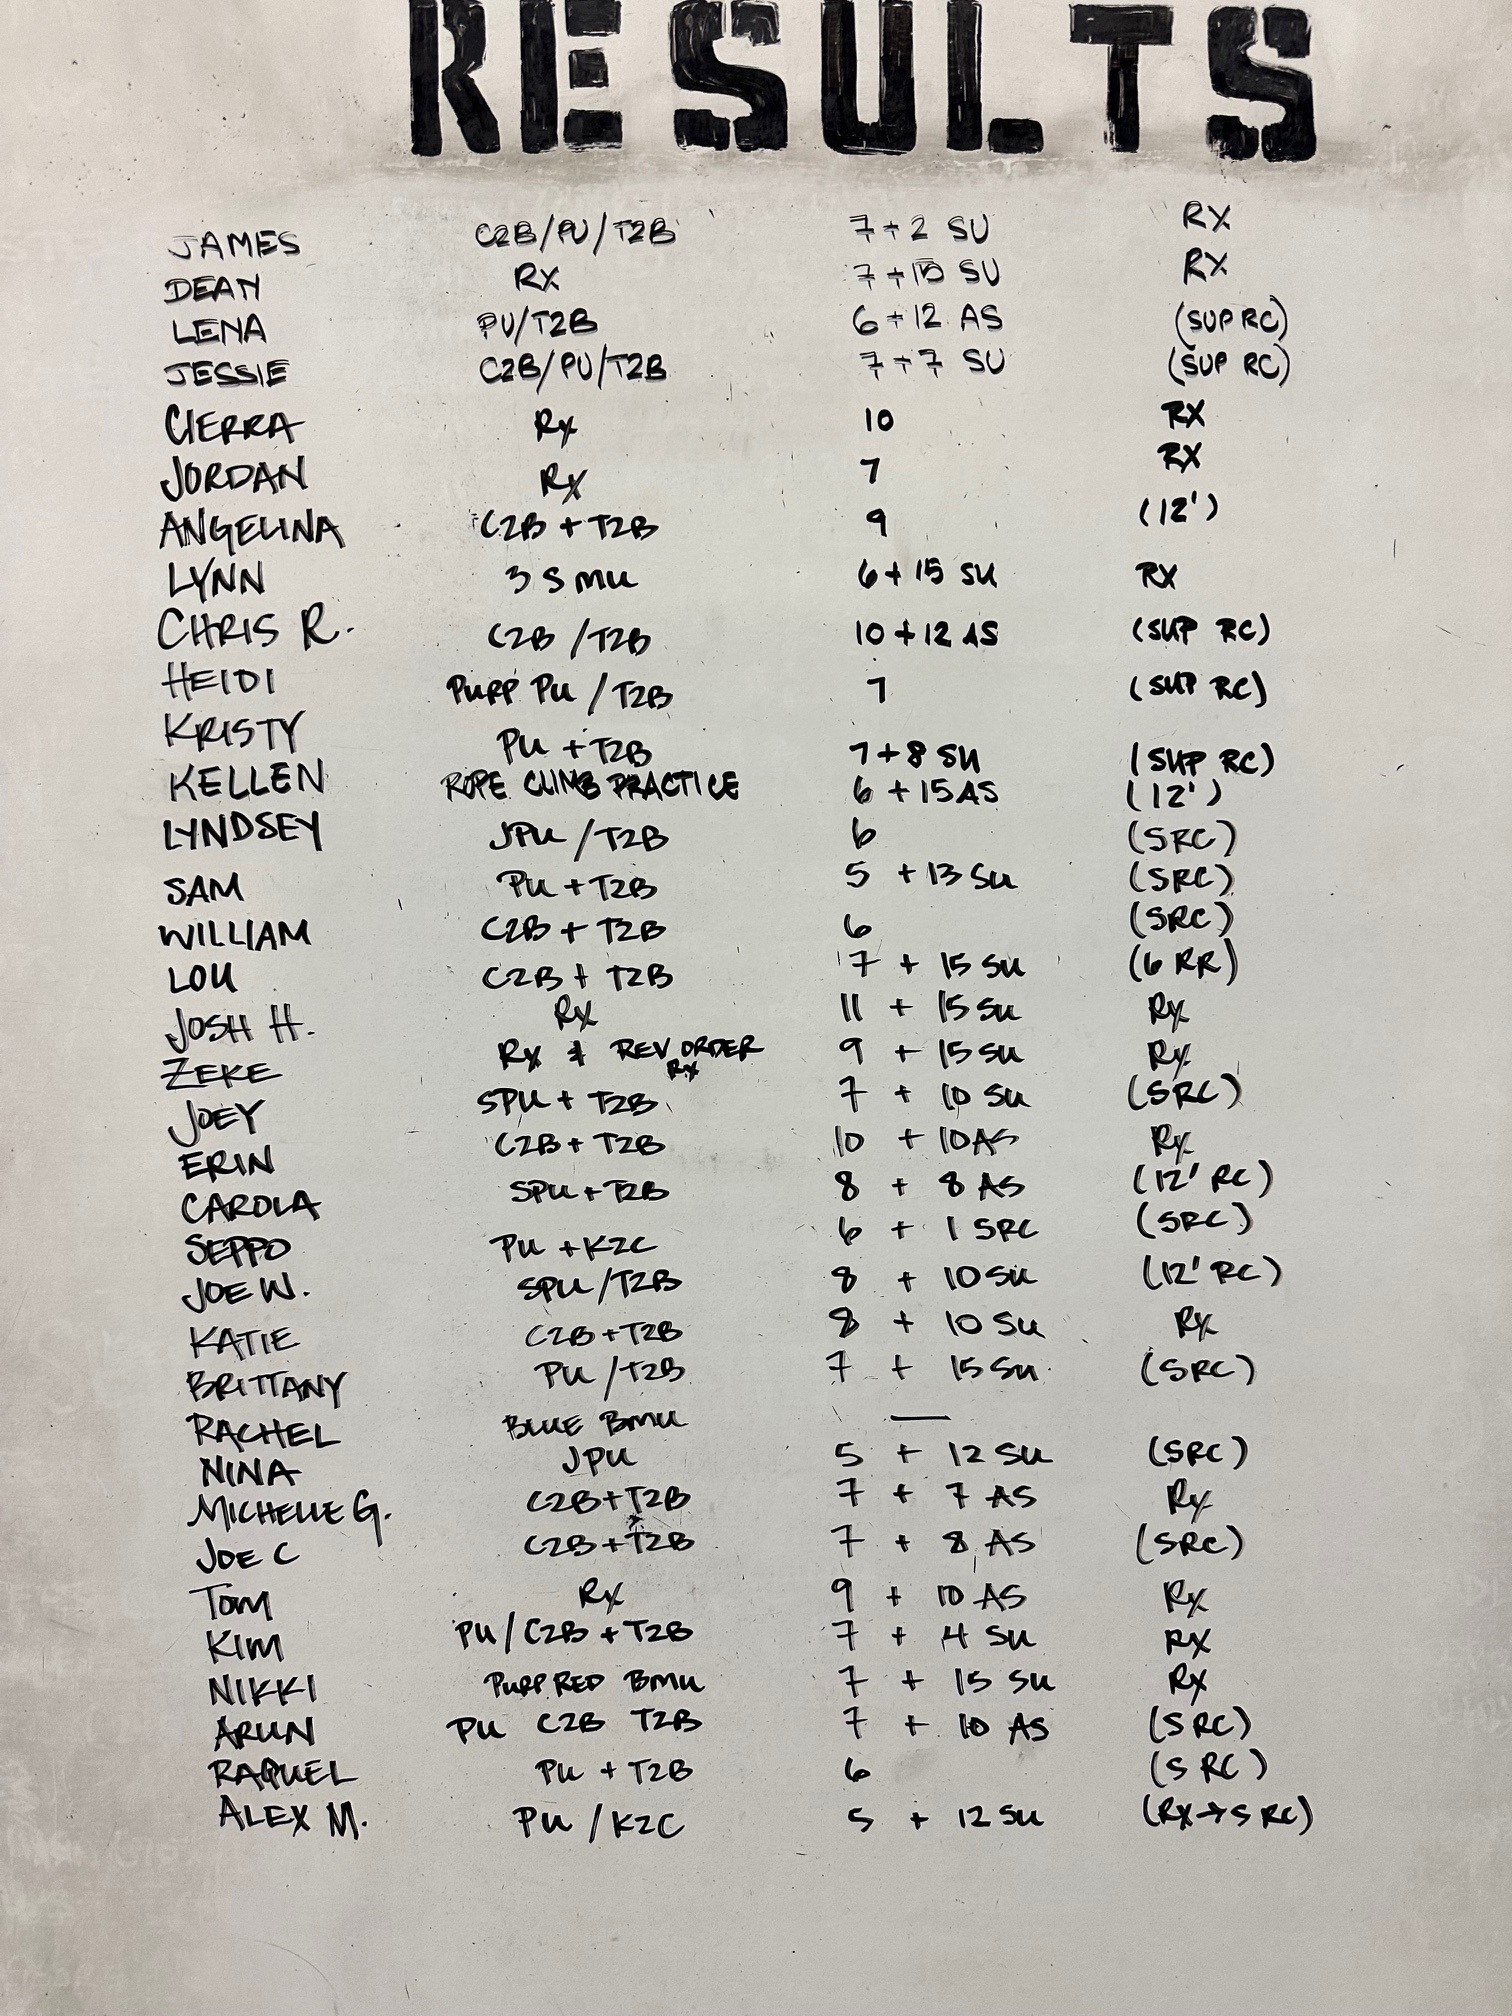 RESULTS
JAMES C2B/PU/T2B 7+2 SU RX
DEAN RX 7+15 SU RX
LENA PU/T2B 6+12 AS (SUP RC)
JESSIE C2B/PU/T2B 7+7 SU (SUP RC)
CIERRA Rx 10 RX
JORDAN Rx 7 RX
ANGELINA C2B + T2B 9 (12')
LYNN 3 S MU 6+15 SU RX
CHRIS R. C2B /T2B 10+12 AS (SUP RC)
HEIDI PURP PU /T2B 7 (SUP RC)
KRISTY PU +T2B 7+8 SU (SUP RC)
KELLEN ROPE CLIMB PRACTICE 6 +15 AS (12')
LYNDSEY JPU /T2B 6 (SRC)
SAM PU +T2B 5 +13 SU (SRC)
WILLIAM C2B + T2B 6 (SRC)
LOU C2B + T2B 7 + 15 SU (6 RR)
JOSH H. Rx 11 + 15 SU Rx
ZEKE Rx & REV ORDER Rx 9 + 15 SU Rx
JOEY SPU + T2B 7 + 10 SU (SRC)
ERIN C2B + T2B 10 + 10 AS Rx
CAROLA SPU + T2B 8 + 8 AS (12' RC)
SEPPO PU +K2C 6 + 1 SRC (SRC)
JOE W. SPU /T2B 8 + 10 SU (12' RC)
KATIE C2B +T2B 8 + 10 SU Rx
BRITTANY PU /T2B 7 + 15 SU (SRC)
RACHEL BLUE BMU —
NINA JPU 5 + 12 SU (SRC)
MICHELLE G. C2B+T2B 7 + 7 AS Rx
JOE C C2B+T2B 7 + 8 AS (SRC)
TOM Rx 9 + 10 AS Rx
KIM PU/C2B +T2B 7 + 4 SU RX
NIKKI PURP RED BMU 7 + 15 SU Rx
ARUN PU C2B T2B 7 + 10 AS (SRC)
RAQUEL PU + T2B 6 (S RC)
ALEX M. PU / K2C 5 + 12 SU (RX→S RC)